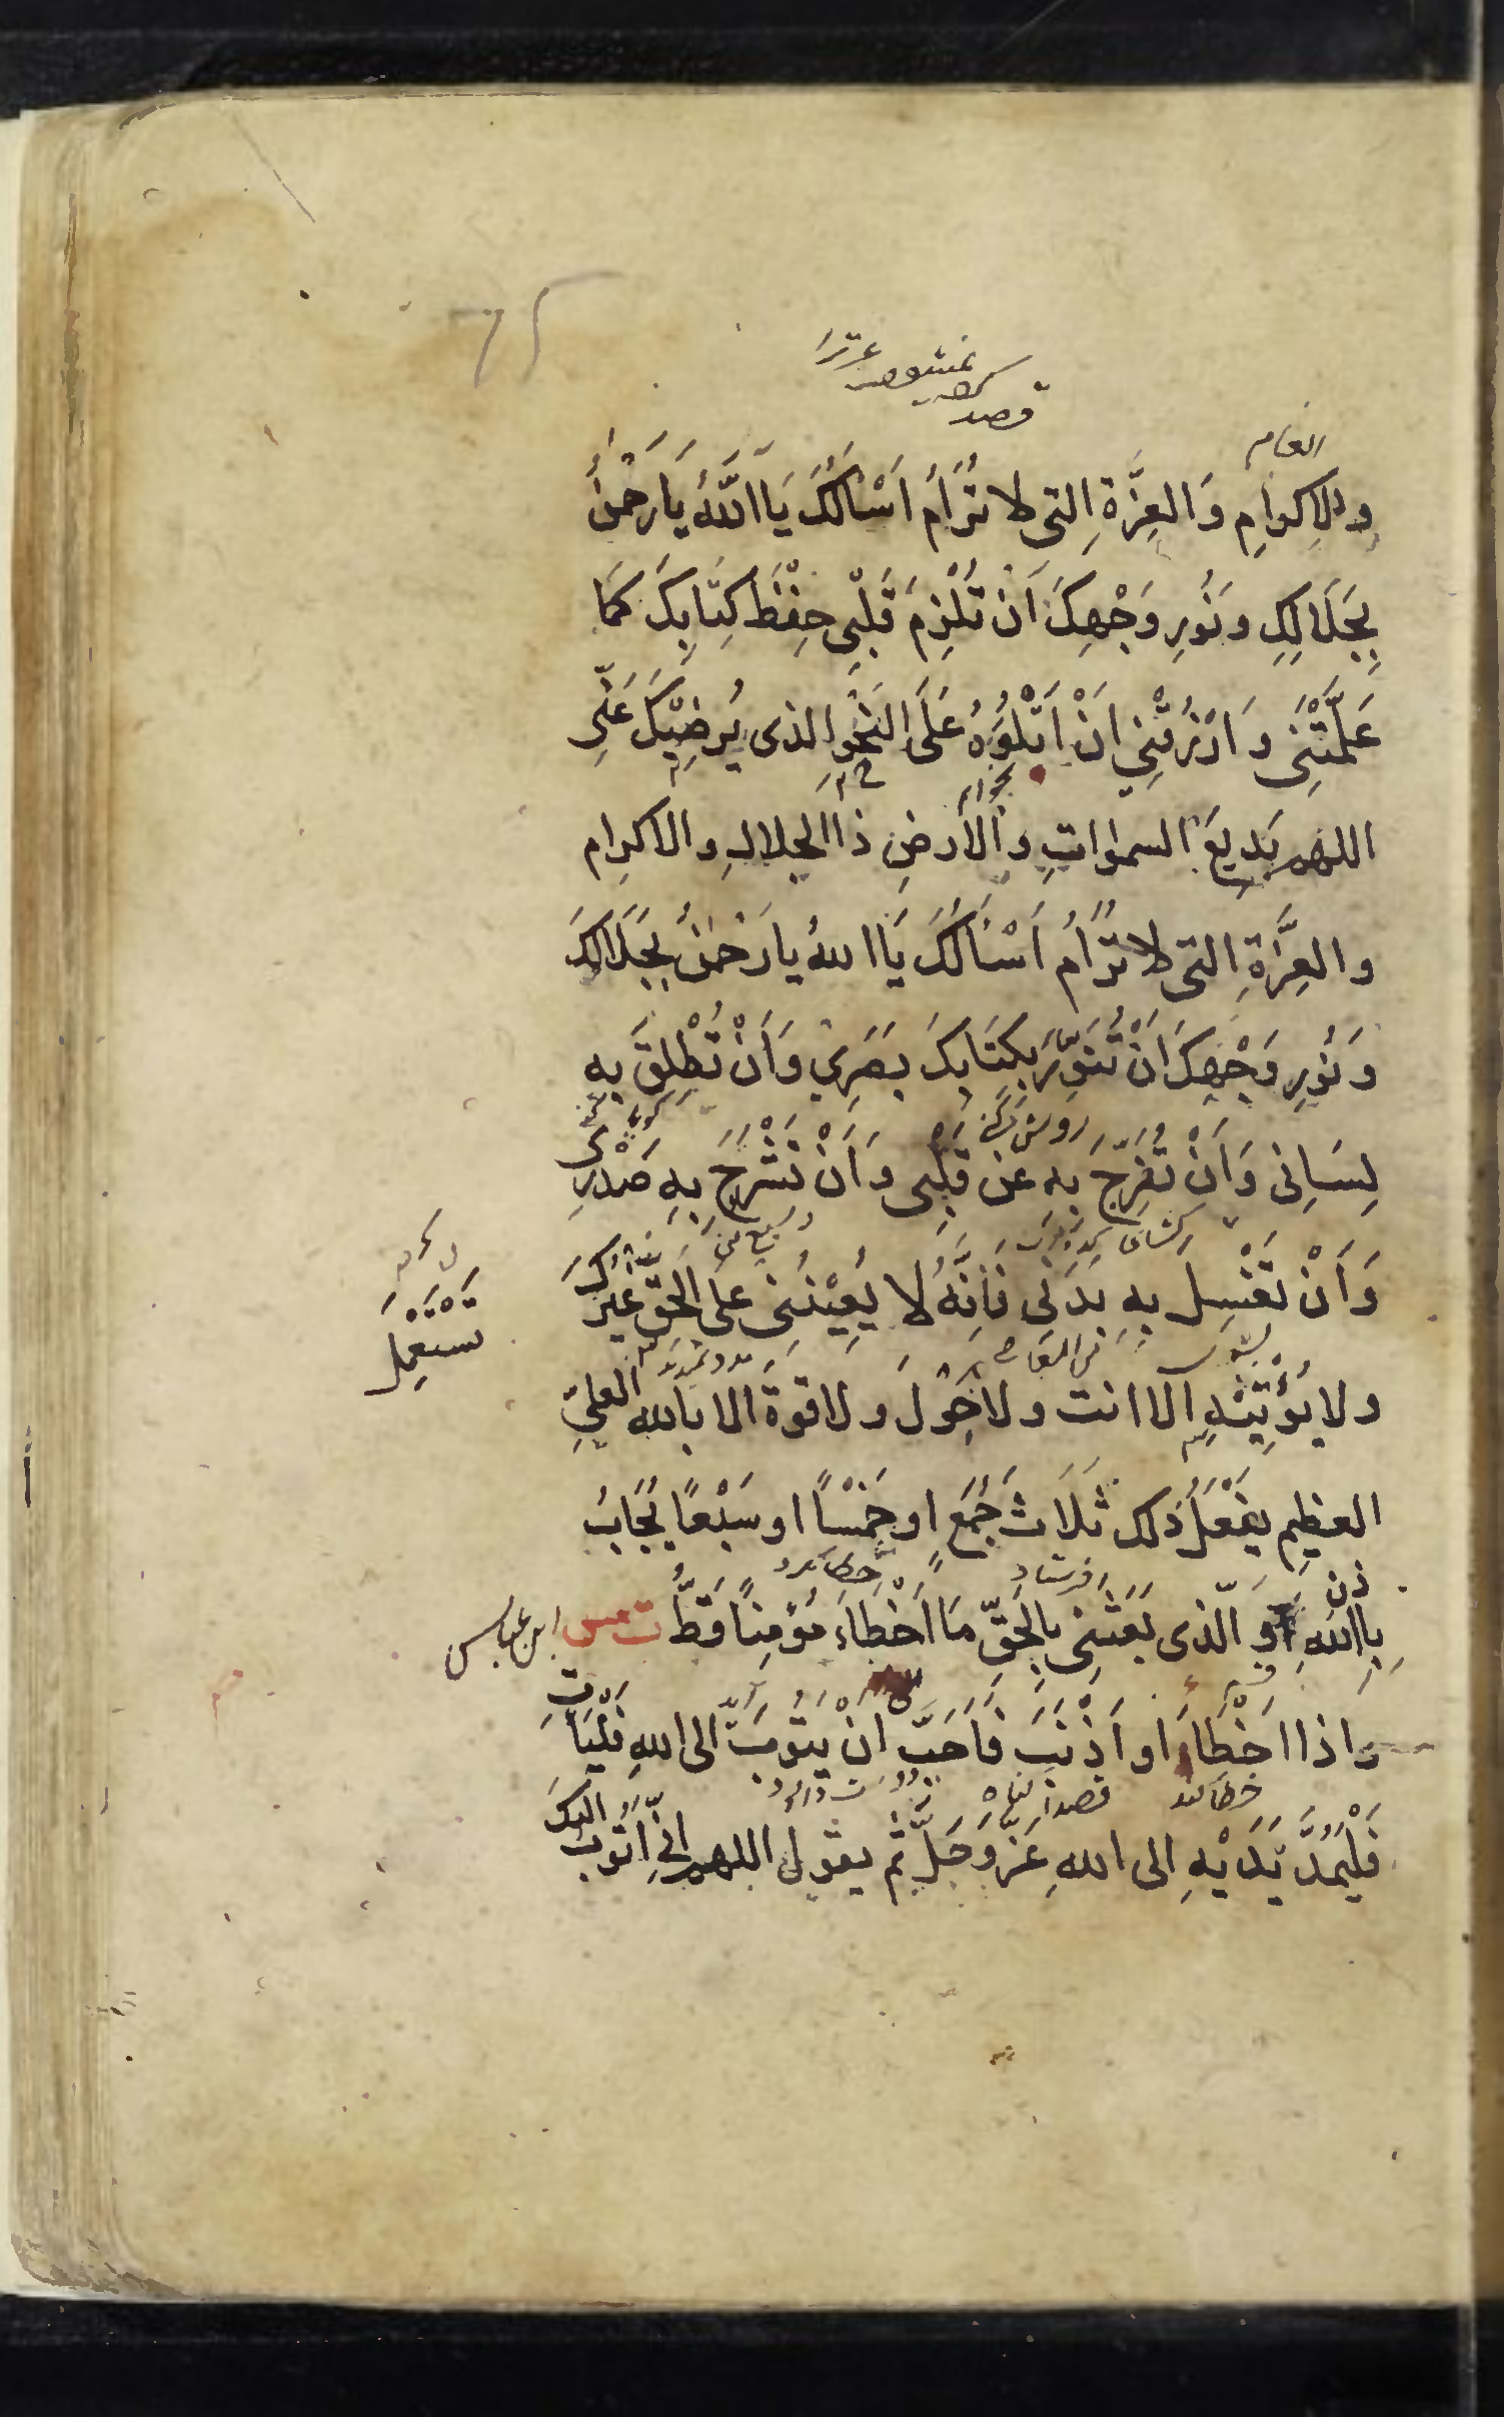 قصد
انعام
والاكرامِ وَالعِزَّةِ التى لا تُرَامُ اَسْاَلُكَ يَا اَللّٰهُ يَا رَحْمٰنُ
بِجَلَالِكَ ونُورِ وَجْهِكَ اَنْ تُلْزِمَ قَلْبِى حِفْظَ كِتَابِكَ كَمَا
عَلَّمْتَنِى وَارْزُقْنِي اَنْ اَتْلُوَهُ عَلَى النَّحْوِ الذى يُرضِيْكَ عَنِّى
اللهم بَدِيعَ السموٰاتِ والأرضِ ذا الجلالِ والاكرام
والعِزَّةِ التى لا تُرَامُ اَسْئَالُكَ يَا اللهُ يا رَحْمٰنُ بِجَلَالِكَ
وَنُورِ وَجْهِكَ اَنْ تُنَوِّرَ بِكِتَابِكَ بَصَرِي وَاَنْ تُطْلِقَ بِه
روشن كنى
لِسَانِى وَاَنْ تُفَرِّجَ بِه عَن قَلْبِى وَاَنْ تَشْرَحَ بِهِ صَدْرِى
وَاَنْ تَغْسِلَ بِه بَدَنِى فَاِنَّهُ لَا يُعِيْنُنِى على الحَقِّ غَيْرُكَ
تَسْتَعْمِلَ
ولا يُؤْتِيْهِ اِلا انت ولا حَوْلَ ولا قوةَ الا بالله العلىِّ
العظيمِ يَفْعَلُ ذلك ثَلَاثَ جُمَعٍ او خَمْسًا او سَبْعًا يُجَابُ
فرستاد خطا كرد
بِاذن اللهِ وَالّذى بَعَثَنِى بِالحَقِّ مَا اَخْطَاءَ مُؤمِنًا قَطُّ ت مس ابن عباس
واذا اَخْطَاءَ او اَذْنَبَ فَاَحَبَّ اَنْ يَتُوبَ الى اللهِ فَلْيَاتِ
خطا كند قصد گناه دوست دارد
فَلْيَمُدَّ يَدَيْهِ الى اللهِ عَزَّ وَجَلَّ ثُم يقول اللهم اِنِّى اَتُوبُ اليكَ